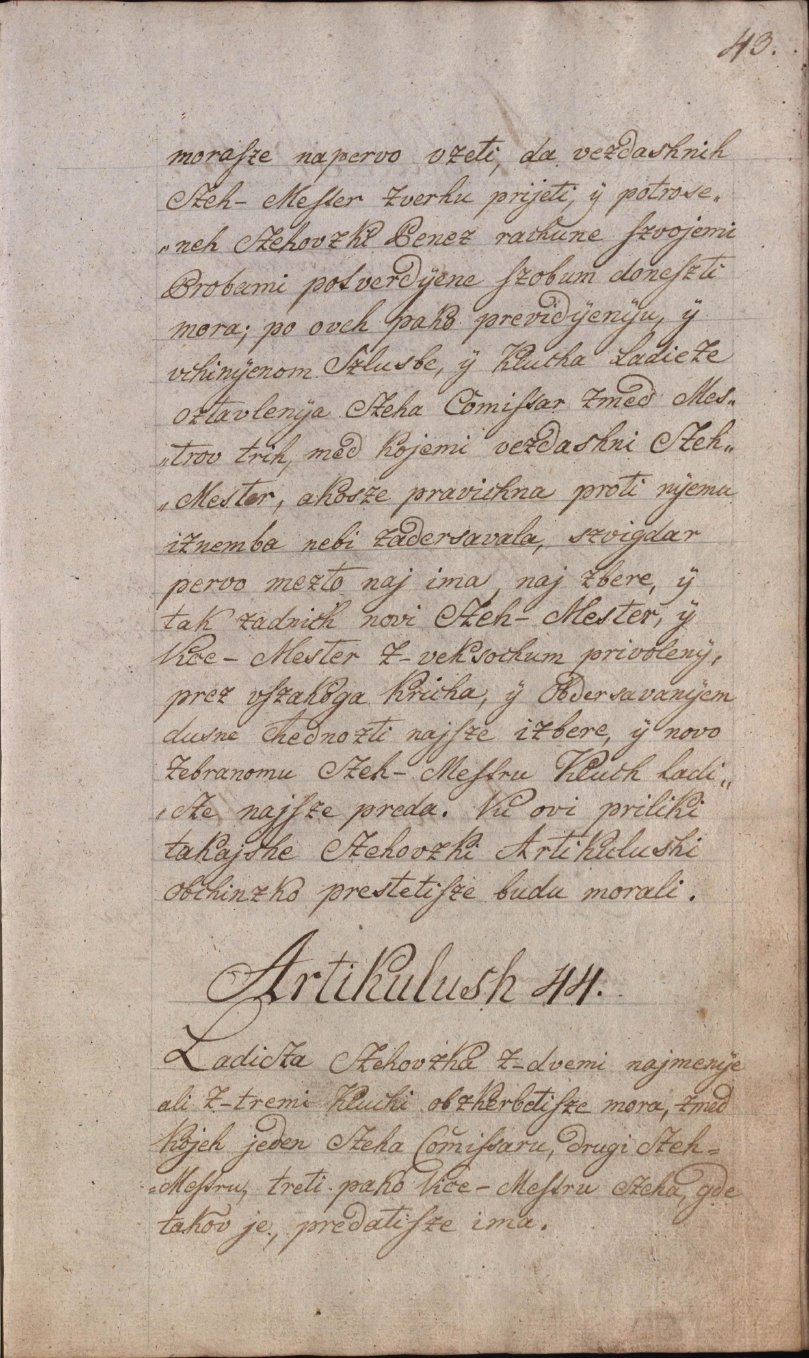 43.
morasze napervo vzeti, da vezdashnih
Czeh- Meszter zverhu prijeti, ÿ potrose„
„neh Czehovzki Penez rachune szvojemi
Probami potverdÿene szobum doneszti
mora; po oveh pako previdÿenÿu, ÿ
vchinÿenom Szlusbe, ÿ Klucha Ladicze
oztavlenÿa Czeha Com̃issar zmed Mes„
„trov trih, med kojemi vezdashni Czeh„
„Mester, akosze pravichna proti nÿemu
iznemba nebi zadersavala, szvigdar
pervo mezto naj ima, naj zbere, ÿ
tak zadnich novi Czeh- Mester, ÿ
Vice- Mester z-veksochum privolenÿ,
prez vszakoga kricha, ÿ obdersavanÿem
dusne chednozti najsze izbere, ÿ novo
zebranomu Czeh- Mestru Kluch Ladi„
„cze najsze preda. Vu ovi priliki
takajshe Czehovzki Artikulushi
obchinzko prestetisze budu morali.
Artikulush 44.
Ladicza Czehovzka z-dvemi najmenÿe
ali z-tremi kluchi obzkerbetisze mora, zmed
kojeh jeden Czeha Com̃issaru, drugi Czeh=
=Mestru, treti pako Vice- Mestru Czeha, gde
takov je, predatisze ima.